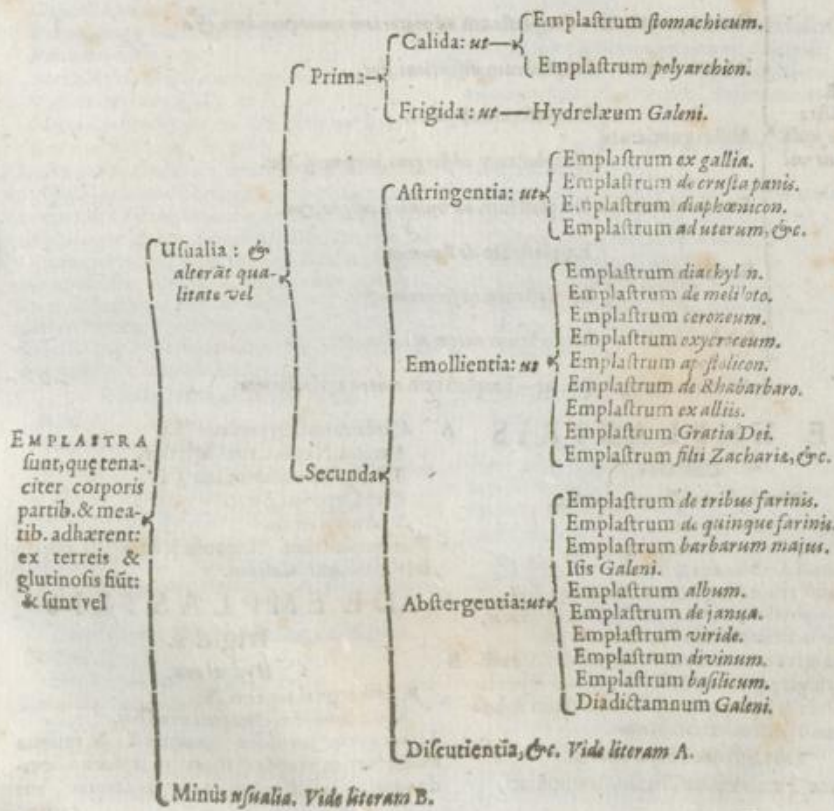 EMPLASTRA
sunt, quę tena-
citer corporis
partib. & mea-
tib. adhærent:
ex terreis &
glutinosis fiũt:
& sunt vel
Usualia: &
alterãt qua-
litate vel
Prima
Calida: ut
Emplastrum stomachicum.
Emplastrum polyarchion.
Frigida: ut — Hydrelæum Galeni.
Secunda
Astringentia: ut
Emplastrum ex gallia.
Emplastrum de crusta panis.
Emplastrum diaphœnicon.
Emplastrum ad uterum, &c.
Emollientia: ut
Emplastrum diachyl n.
Emplastrum de meliloto.
Emplastrum ceroneum.
Emplastrum oxycroceum.
Emplastrum apostolicon.
Emplastrum de Rhabarbaro.
Emplastrum ex alliis.
Emplastrum Gratia Dei.
Emplastrum filii Zachariæ, &c.
Abstergentia: ut
Emplastrum de tribus farinis.
Emplastrum de quinque farinis.
Emplastrum barbarum majus.
Isis Galeni.
Emplastrum album.
Emplastrum de janua.
Emplastrum viride.
Emplastrum divinum.
Emplastrum basilicum.
Diadictamnum Galeni.
Discutientia, &c. Vide literam A.
Minùs usualia. Vide literam B.